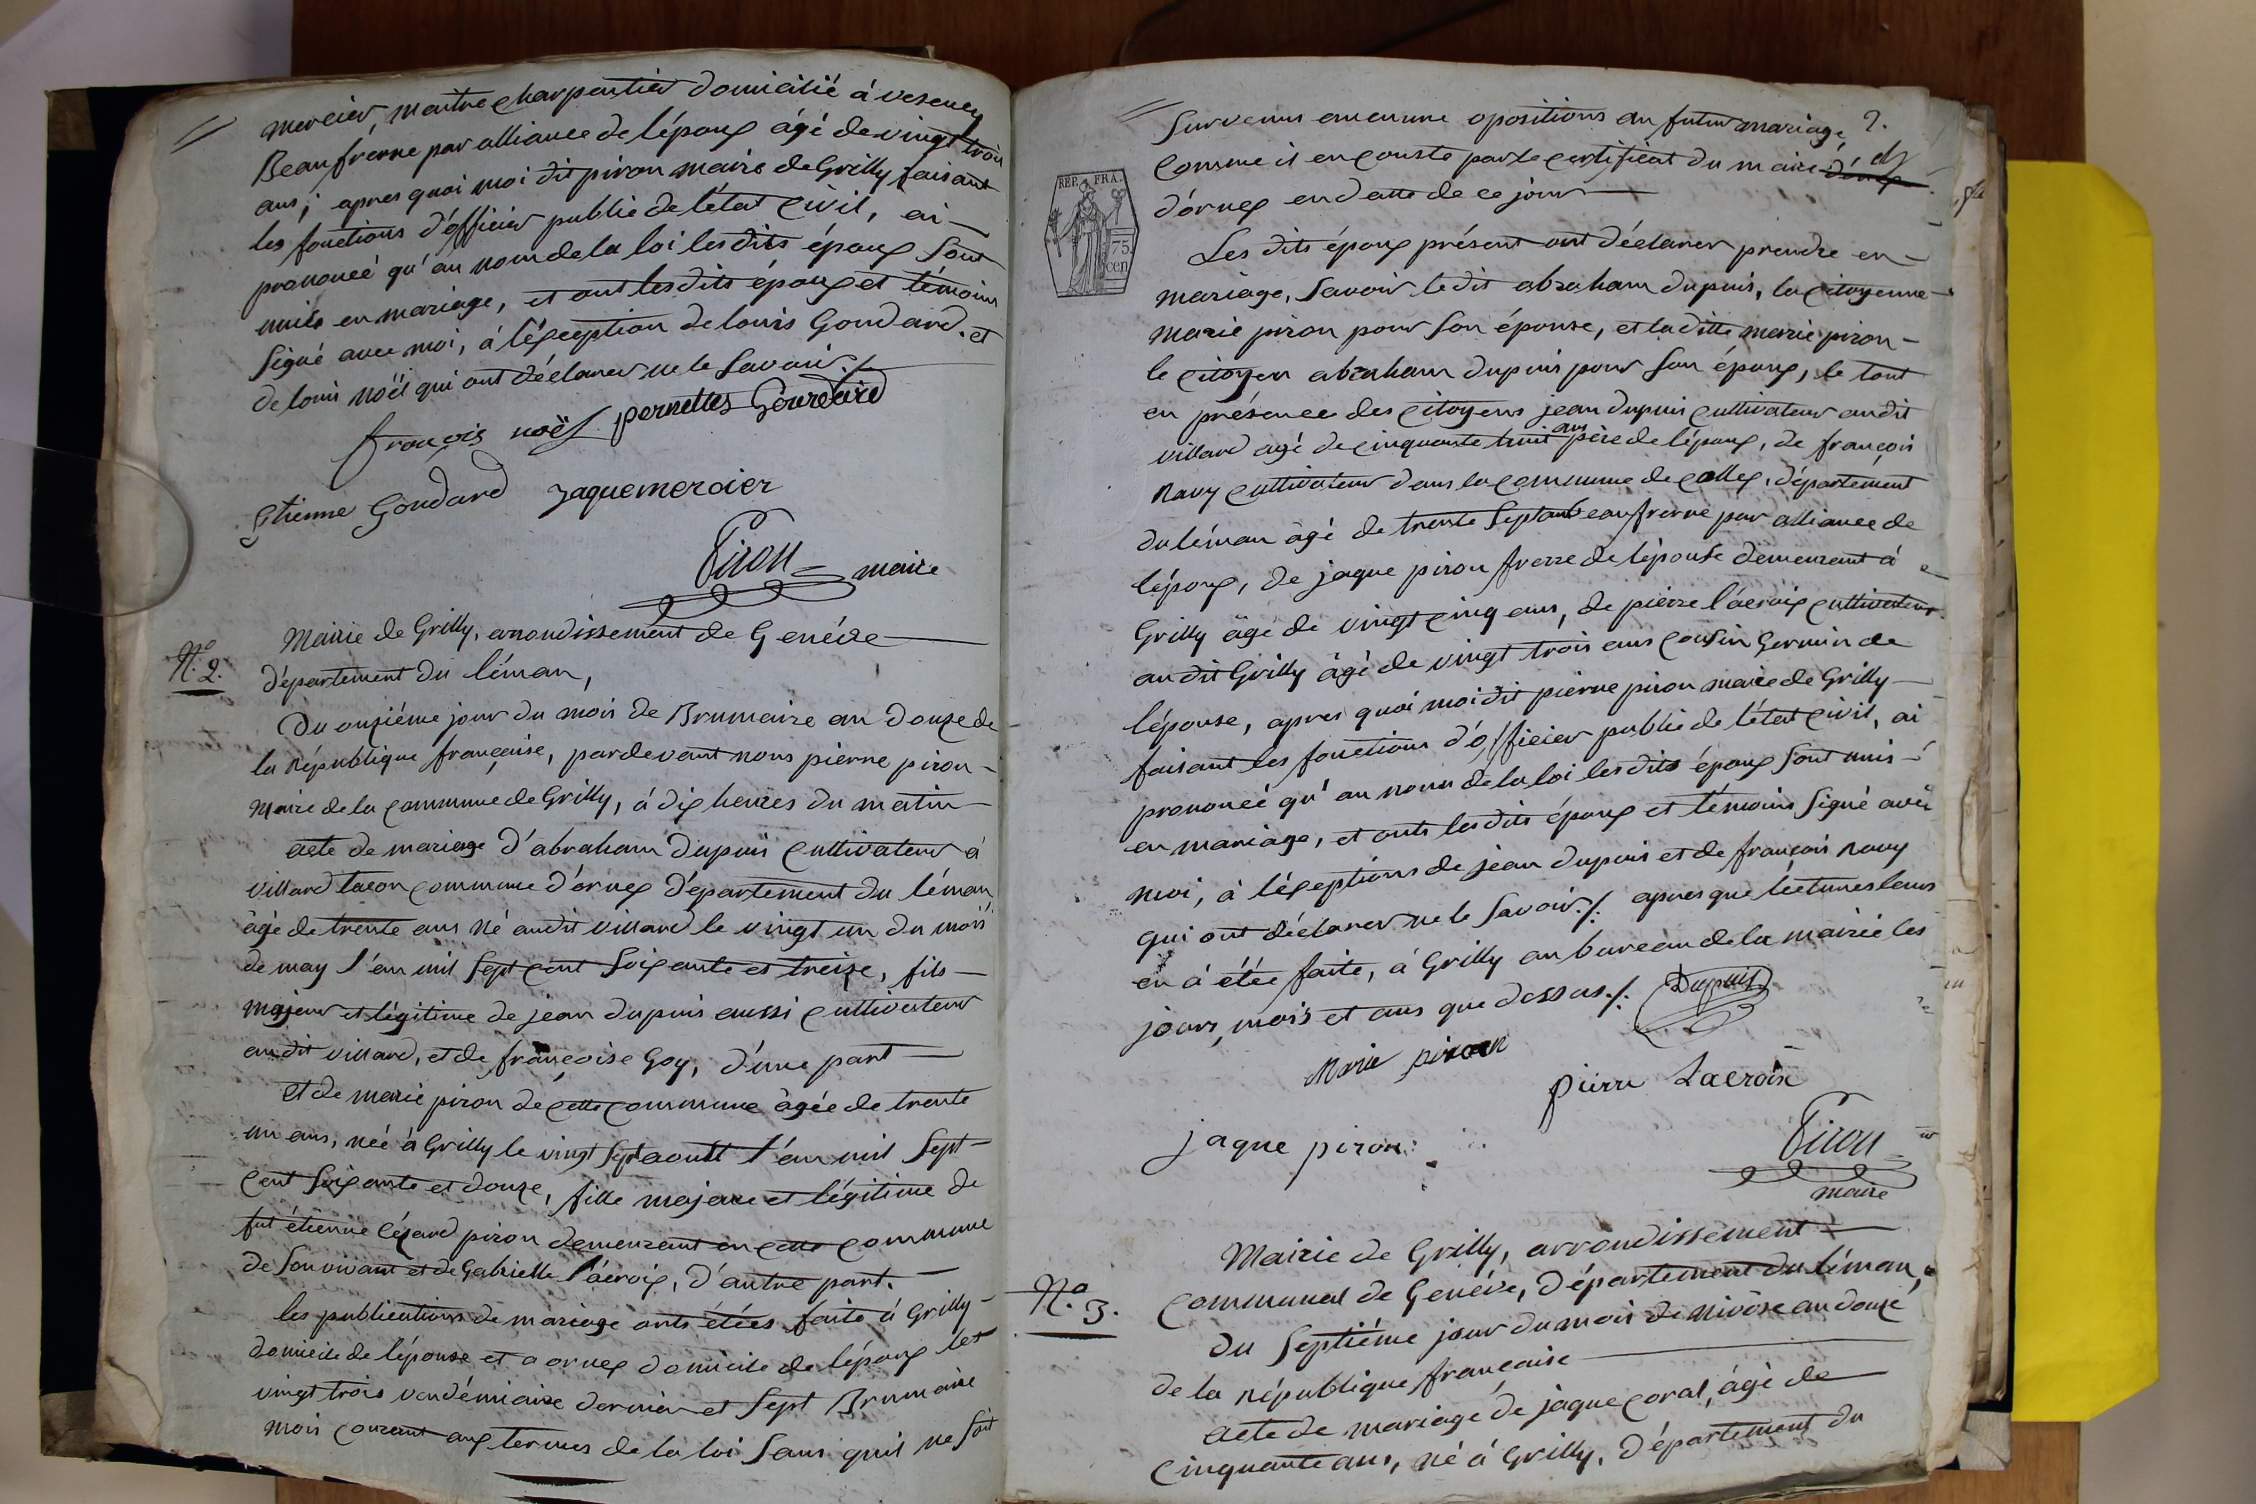 mercier, maitre charpentier domicilié à vesenex
Beaufrerre par alliance de l'époux âgé de vingt trois
ans; apres quoi moi dit piron maire de Grilly faisant
les fonctions d'officier public de l'état civil, ai
prononcé qu'au nom de la loi les dits époux sont
unis en mariage, et ont les dits époux et témoins
signé avec moi, à l'éxception de louis Goudard, et
de louis noël qui ont déclarer ne le savoir ./.
françois noël pernettes Gourdard
Etienne Goudard jaque mercier
Piron maire
N.º 2.
Mairie de Grilly, arrondissement de Genéve
département du léman,
Du onziéme jour du mois de Brumaire an douze de
la république française, pardevant nous pierre piron
maire de la commune de Grilly, à dix heures du matin
acte de mariage d'abraham dupuis cultivateur à
villard tacon commune d'ornex département du léman,
âgé de trente ans né audit villard le vingt un du mois
de may l'an mil sept cent soixante et treize, fils
majeur et légitime de jean dupuis aussi cultivateur
audit villard, et de françoise Goy, d'une part
et de marie piron de cette commune âgée de trente
un ans, née à Grilly le vingt sept aoust l'an mil sept
cent soixante et douze, fille majeure et légitime de
fut étienne cézard piron demeurant en cette commune
de son vivant et de Gabrielle l'acroix, d'autre part.
les publications de mariage onts étées faite à Grilly
domicile de l'épouse et a ornex domicile de l'époux les
vingt trois vendémiaire dernier et sept Brumaire
mois courant aux termes de la loi sans quil ne soit
2.
survenus aucunne opositions au futur mariage,
comme il en conste par le certificat du maire
d'ornex en datte de ce jour
REP. FRA.
75
cen
Les dits époux présent ont déclarer prendre en
mariage, savoir le dit abraham dupuis, la citoyenne
marie piron pour son épouse, et la ditte marie piron
le citoyen abraham dupuis pour son époux, le tout
en présence des citoyens jean dupuis cultivateur audit
villard agé de cinquante huit ans père de l'époux, de françois
navy cultivateur dans la commune de collex, département
du léman âgé de trente sept ans beaufrerre par alliance de
l'époux, de jaque piron frerre de l'épouse demeurant à
Grilly âgé de vingt cinq ans, de pierre l'acroix cultivateur
au dit Grilly âgé de vingt trois ans cousin Germin de
l'épouse, apres quoi moi dit pierre piron maire de Grilly
faisant les fonctions d'officier public de l'état civil, ai
prononcé qu'au nom de la loi les dits époux sont unis
en mariage, et onts les dits époux et témoins signé avec
moi, à l'éxeptions de jean dupuis et de françois navy
qui ont déclarer ne le savoir ./. apres que lectures leurs
en à étée faite, à Grilly au bureau de la mairie les
jours, mois et ans que dessus ./. Dupuis
Marie piron
pierre Lacroix
jaque piron
Piron
maire
N.º 3.
Mairie de Grilly, arrondissement
communal de Genéve, département du léman,
du septiéme jour du mois de nivôse an douze
de la république française
acte de mariage de jaque coral, âgé de
cinquante ans, né à Grilly, département du